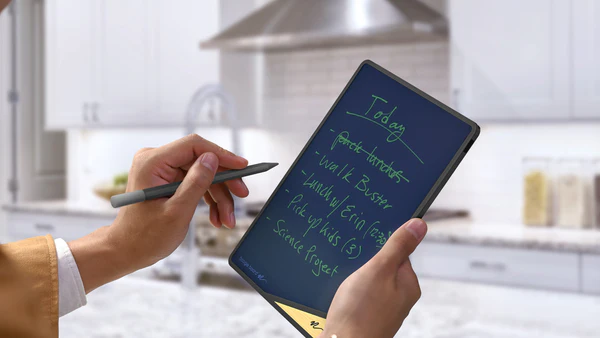 Today
- pack lunches
- Walk Buster
- Lunch w/ Erin (12:30)
- Pick up kids (3)
- Science Project